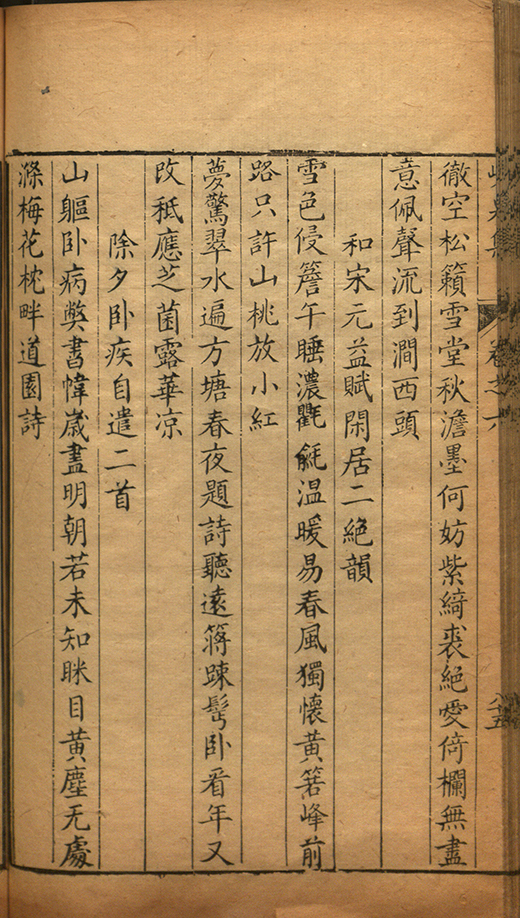 卷之六
徹空松籟雪堂秋澹墨何妨紫綺裘絕愛倚欄無盡
意佩聲流到澗西頭
和宋元益賦閑居二絕韻
雪色侵簷午睡濃氍毹温暖易春風獨懷黃箬峰前
路只許山桃放小紅
夢驚翠水遍方塘春夜題詩聽遠簿踈髩卧看年又
改秪應芝菌露華凉
除夕卧疾自遣二首
山軀卧病弊書幃歲盡明朝若未知眯目黃塵无處
滌梅花枕畔道園詩